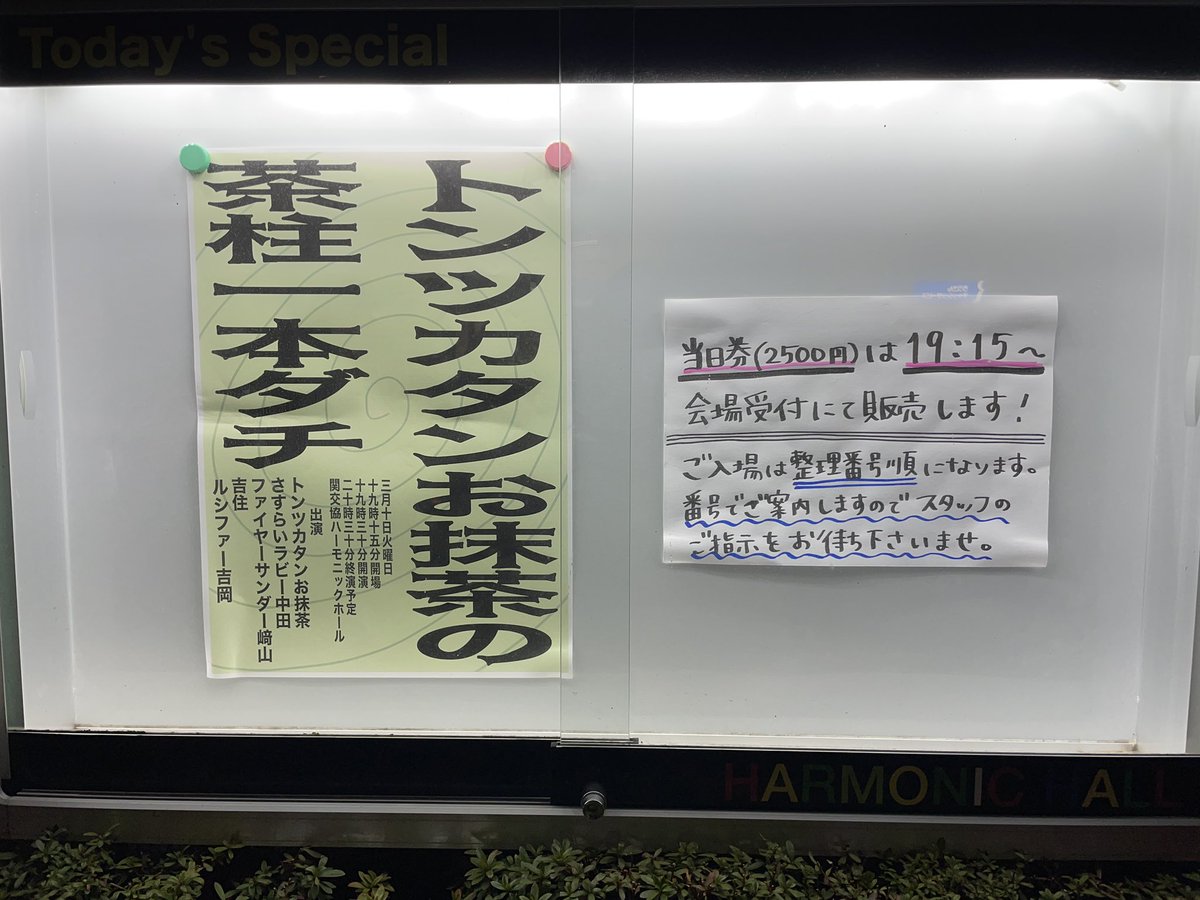 Today's Special
トンツカタンお抹茶の
茶柱一本ダチ
三月十日火曜日
十九時十五分開場
十九時三十分開演
二十時三十分終演予定
関交協ハーモニックホール
出演
トンツカタンお抹茶
さすらいラビー中田
ファイヤーサンダー﨑山
吉住
ルシファー吉岡
当日券(2500円)は19:15〜
会場受付にて販売します!
ご入場は整理番号順になります。
番号でご案内しますのでスタッフの
ご指示をお待ち下さいませ。
HARMONIC HALL